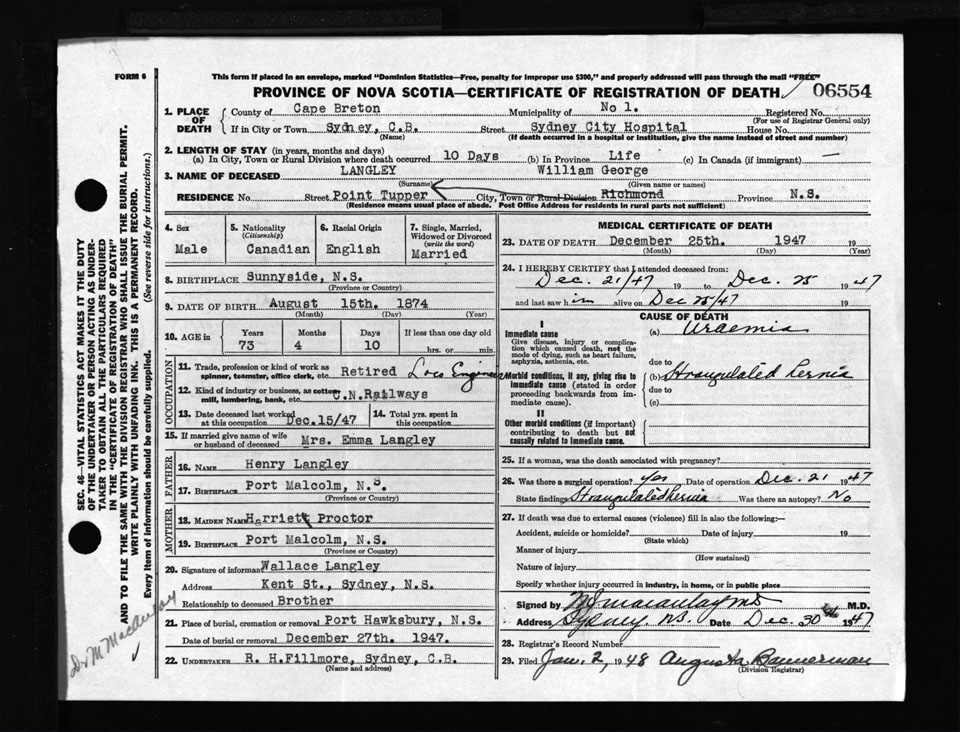 FORM 6
This form if placed in an envelope, marked "Dominion Statistics—Free, penalty for improper use $300," and properly addressed will pass through the mail "FREE"
PROVINCE OF NOVA SCOTIA—CERTIFICATE OF REGISTRATION OF DEATH 06554
1. PLACE OF DEATH
County of Cape Breton Municipality of No 1. Registered No.
(For use of Registrar General only)
If in City or Town Sydney, C.B. Street Sydney City Hospital House No.
(Name) (If death occurred in a hospital or institution, give the name instead of street and number)
2. LENGTH OF STAY (in years, months and days)
(a) In City, Town or Rural Division where death occurred 10 Days (b) In Province Life (c) In Canada (if immigrant) —
3. NAME OF DECEASED LANGLEY William George
(Surname) (Given name or names)
RESIDENCE No. Street Point Tupper City, Town or Rural Division Richmond Province N.S.
(Residence means usual place of abode. Post Office Address for residents in rural parts not sufficient)
4. Sex Male
5. Nationality (Citizenship) Canadian
6. Racial Origin English
7. Single, Married, Widowed or Divorced (write the word) Married
8. BIRTHPLACE Sunnyside, N.S.
(Province or Country)
9. DATE OF BIRTH August 15th. 1874
(Month) (Day) (Year)
10. AGE in Years 73 Months 4 Days 10 If less than one day old hrs. or min.
OCCUPATION
11. Trade, profession or kind of work as spinner, teamster, office clerk, etc. Retired Loco Engineer
12. Kind of industry or business, as cotton mill, lumbering, bank, etc. C.N.Railways
13. Date deceased last worked at this occupation Dec.15/47
14. Total yrs. spent in this occupation
15. If married give name of wife or husband of deceased Mrs. Emma Langley
FATHER
16. NAME Henry Langley
17. BIRTHPLACE Port Malcolm, N.S.
(Province or Country)
MOTHER
18. MAIDEN NAME Harriett Proctor
19. BIRTHPLACE Port Malcolm, N.S.
(Province or Country)
20. Signature of informant Wallace Langley
Address Kent St., Sydney, N.S.
Relationship to deceased Brother
21. Place of burial, cremation or removal Port Hawksbury, N.S.
Date of burial or removal December 27th. 1947.
22. UNDERTAKER R. H.Fillmore, Sydney, C.B.
(Name and address)
MEDICAL CERTIFICATE OF DEATH
23. DATE OF DEATH December 25th. 1947 19
(Month) (Day) (Year)
24. I HEREBY CERTIFY that I attended deceased from:
Dec. 21/47 19 to Dec. 25 1947
and last saw him alive on Dec 25/47 19
CAUSE OF DEATH
I
Immediate cause (a) Uraemia
Give disease, injury or complication which caused death, not the mode of dying, such as heart failure, asphyxia, asthenia, etc.
due to
Morbid conditions, if any, giving rise to immediate cause (stated in order proceeding backwards from immediate cause).
(b) Strangulated hernia
due to
(c)
II
Other morbid conditions (if important) contributing to death but not causally related to immediate cause.
25. If a woman, was the death associated with pregnancy?
26. Was there a surgical operation? Yes Date of operation Dec 21 1947
State findings Strangulated hernia Was there an autopsy? No
27. If death was due to external causes (violence) fill in also the following:—
Accident, suicide or homicide? Date of injury 19
(State which)
Manner of injury
(How sustained)
Nature of injury
Specify whether injury occurred in industry, in home, or in public place
Signed by M.D.
Address Sydney. N.S. Date Dec. 30 1947
28. Registrar's Record Number
29. Filed Jan. 2, 1948 Augusta Bannerman
(Division Registrar)
SEC. 46—VITAL STATISTICS ACT MAKES IT THE DUTY
OF THE UNDERTAKER OR PERSON ACTING AS UNDERTAKER
TO OBTAIN ALL THE PARTICULARS REQUIRED
IN THE "CERTIFICATE OF REGISTRATION OF DEATH"
AND TO FILE THE SAME WITH THE DIVISION REGISTRAR WHO SHALL ISSUE THE BURIAL PERMIT.
WRITE PLAINLY WITH UNFADING INK. THIS IS A PERMANENT RECORD.
Every item of information should be carefully supplied. (See reverse side for instructions.)